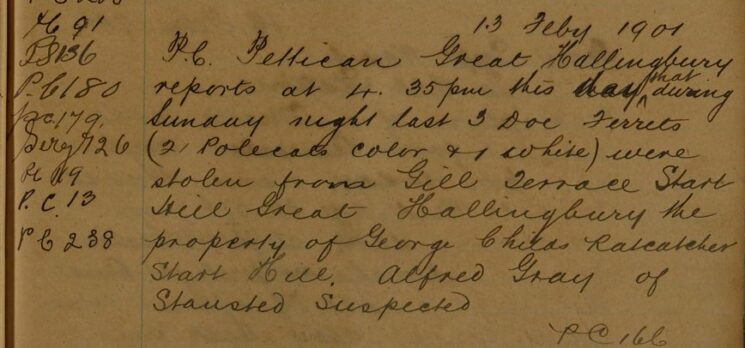 H 91
PS 136
P.C 180
PC 179
Serg 126
PC 19
P.C. 13
PC 238
13 Feby 1901
P.C. Pettican Great Hallingbury
reports at 4.35pm this day that during
Sunday night last 3 Doe Ferrets
(2 Polecats color & 1 white) were
stolen from Gill Terrace Start
Hill Great Hallingbury the
property of George Childs Ratcatcher
Start Hill. Alfred Gray of
Stansted Suspected
PC 166